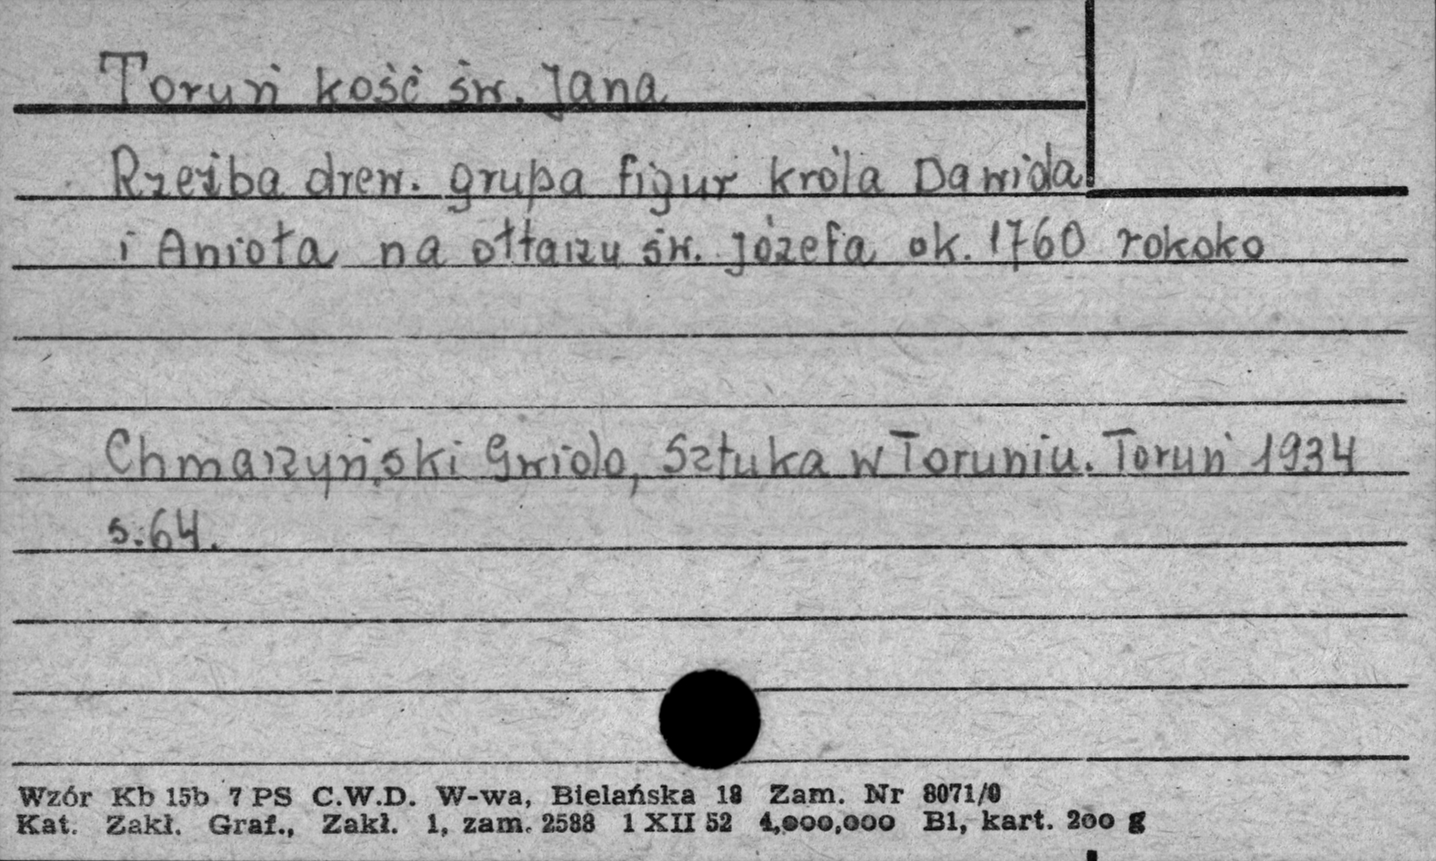 Toruń kość św. Jana
Rzeźba drew. grupa figur króla Dawida
i Anioła na ołtarzu św. Józefa ok. 1760 rokoko
Chmarzyński Gwido, Sztuka w Toruniu. Toruń 1934
s. 64.
Wzór Kb 15b 7 PS C.W.D. W-wa, Bielańska 18 Zam. Nr 8071/0
Kat. Zakł. Graf., Zakł. 1, zam. 2588 1 XII 52 4,000,000 B1, kart. 200 g